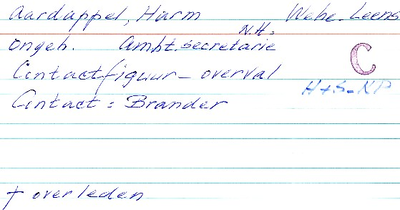 Aardappel, Harm Wehe-Leens
N.H.
Ongeh. Ambt. secretarie
Contactfiguur - overval
C
H+S-KP
Contact: Brander
+ overleden